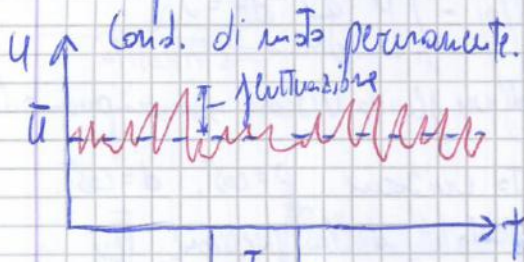 u Cond. di moto permanente.
fluttuazione
ū
t
T